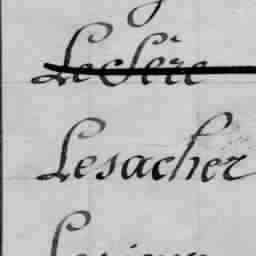 Leclère
Lesacher